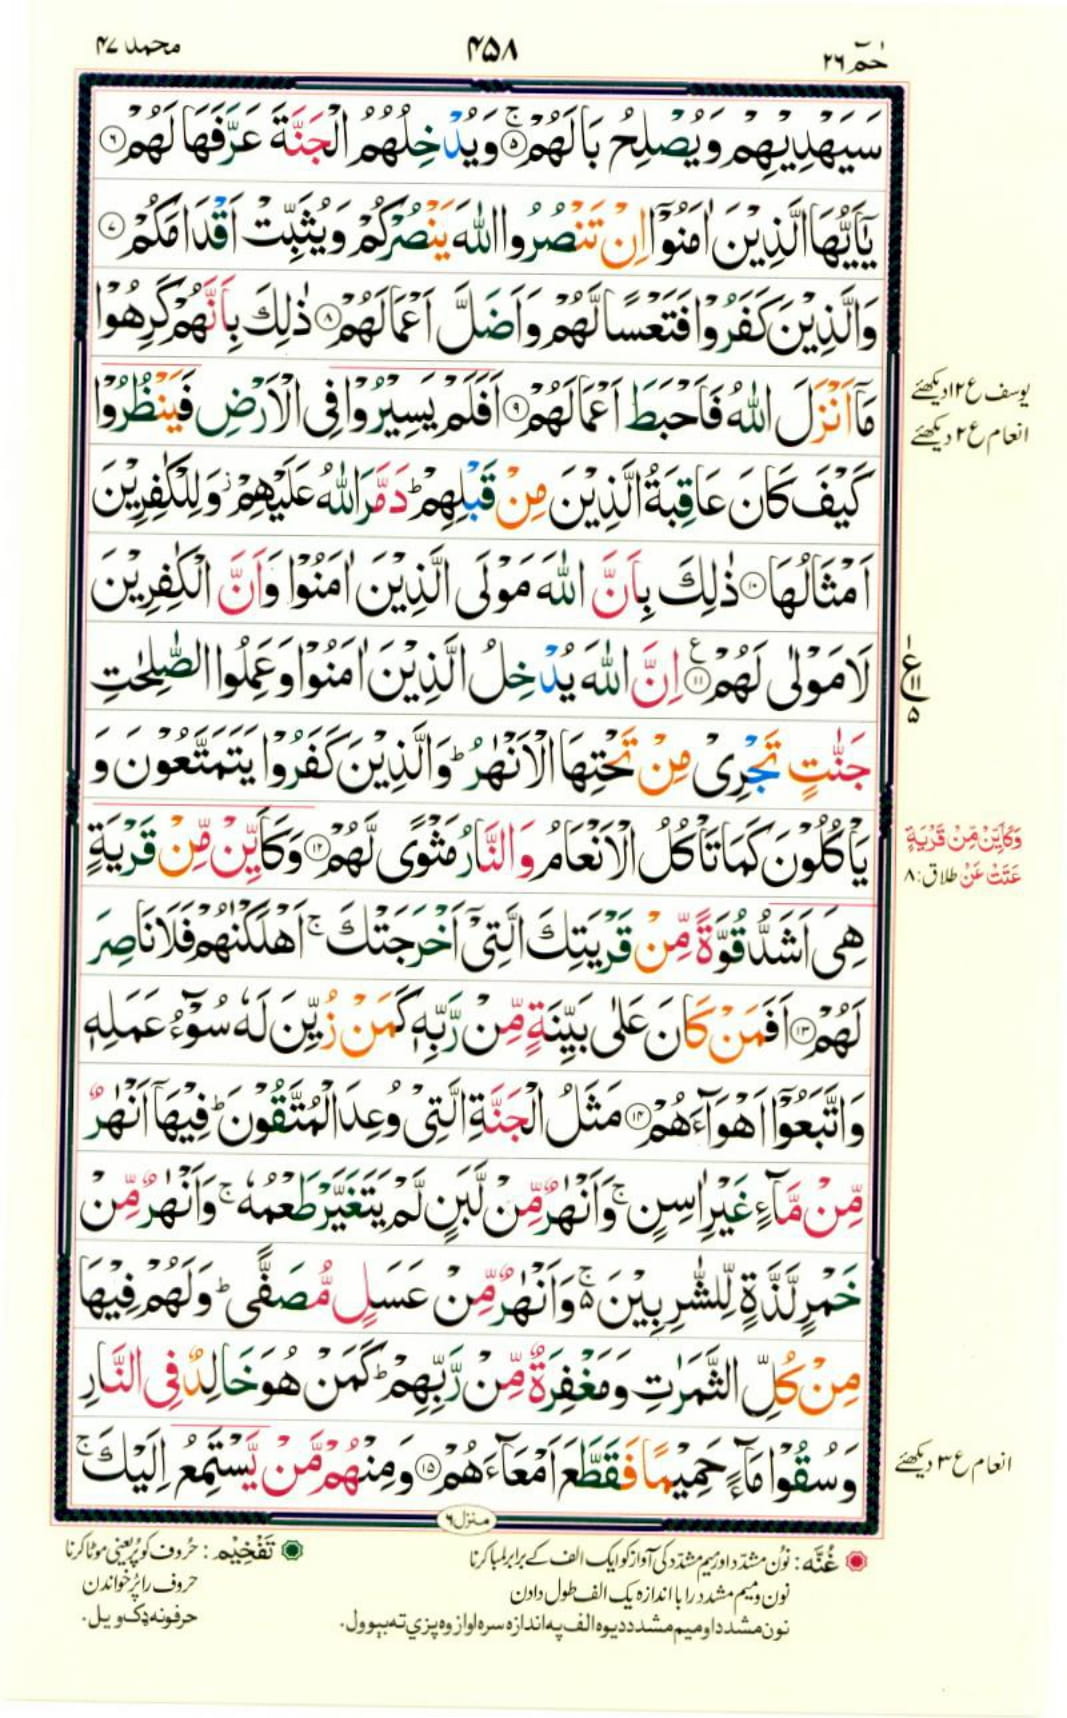 حٰمٓ ٢٦
۴۵۸
محمد ۴۷
سَيَهْدِيْهِمْ وَيُصْلِحُ بَالَهُمْ ۚ‏﴿۵﴾ وَيُدْخِلُهُمُ الْجَنَّةَ عَرَّفَهَا لَهُمْ ﴿۶﴾
يٰۤاَيُّهَا الَّذِيْنَ اٰمَنُوْۤا اِنْ تَنْصُرُوا اللّٰهَ يَنْصُرْكُمْ وَيُثَبِّتْ اَقْدَامَكُمْ ﴿۷﴾
وَالَّذِيْنَ كَفَرُوْا فَتَعْسًا لَّهُمْ وَاَضَلَّ اَعْمَالَهُمْ ﴿۸﴾ ذٰلِكَ بِاَنَّهُمْ كَرِهُوْا
مَاۤ اَنْزَلَ اللّٰهُ فَاَحْبَطَ اَعْمَالَهُمْ ﴿۹﴾ اَفَلَمْ يَسِيْرُوْا فِى الْاَرْضِ فَيَنْظُرُوْا
یوسف ع ۱۲ دیکھئے
انعام ع ۲ دیکھئے
كَيْفَ كَانَ عَاقِبَةُ الَّذِيْنَ مِنْ قَبْلِهِمْ ؕ دَمَّرَ اللّٰهُ عَلَيْهِمْ ز وَلِلْكٰفِرِيْنَ
اَمْثَالُهَا ﴿۱۰﴾ ذٰلِكَ بِاَنَّ اللّٰهَ مَوْلَى الَّذِيْنَ اٰمَنُوْا وَاَنَّ الْكٰفِرِيْنَ
لَا مَوْلٰى لَهُمْ ﴿۱۱﴾ ع اِنَّ اللّٰهَ يُدْخِلُ الَّذِيْنَ اٰمَنُوْا وَعَمِلُوا الصّٰلِحٰتِ
ع ۱۱ ۵
جَنّٰتٍ تَجْرِىْ مِنْ تَحْتِهَا الْاَنْهٰرُ ؕ وَالَّذِيْنَ كَفَرُوْا يَتَمَتَّعُوْنَ وَ
يَاْكُلُوْنَ كَمَا تَاْكُلُ الْاَنْعَامُ وَالنَّارُ مَثْوًى لَّهُمْ ﴿۱۲﴾ وَكَاَيِّنْ مِّنْ قَرْيَةٍ
وَكَاَيِّنْ مِّنْ قَرْيَةٍ
عَتَتْ عَنْ طلاق: ۸
هِىَ اَشَدُّ قُوَّةً مِّنْ قَرْيَتِكَ الَّتِىْۤ اَخْرَجَتْكَ ۚ اَهْلَكْنٰهُمْ فَلَا نَاصِرَ
لَهُمْ ﴿۱۳﴾ اَفَمَنْ كَانَ عَلٰى بَيِّنَةٍ مِّنْ رَّبِّهٖ كَمَنْ زُيِّنَ لَهٗ سُوْٓءُ عَمَلِهٖ
وَاتَّبَعُوْۤا اَهْوَآءَهُمْ ﴿۱۴﴾ مَثَلُ الْجَنَّةِ الَّتِىْ وُعِدَ الْمُتَّقُوْنَ ؕ فِيْهَاۤ اَنْهٰرٌ
مِّنْ مَّآءٍ غَيْرِ اٰسِنٍ ۚ وَاَنْهٰرٌ مِّنْ لَّبَنٍ لَّمْ يَتَغَيَّرْ طَعْمُهٗ ۚ وَاَنْهٰرٌ مِّنْ
خَمْرٍ لَّذَّةٍ لِّلشّٰرِبِيْنَ ۚ۵ وَاَنْهٰرٌ مِّنْ عَسَلٍ مُّصَفًّى ؕ وَلَهُمْ فِيْهَا
مِنْ كُلِّ الثَّمَرٰتِ وَمَغْفِرَةٌ مِّنْ رَّبِّهِمْ ؕ كَمَنْ هُوَ خَالِدٌ فِى النَّارِ
وَسُقُوْا مَآءً حَمِيْمًا فَقَطَّعَ اَمْعَآءَهُمْ ﴿۱۵﴾ وَمِنْهُمْ مَّنْ يَّسْتَمِعُ اِلَيْكَ ۚ
انعام ع ۳ دیکھئے
منزل ۶
غُنَّه: نون مشدّد اور میم مشدّد کی آواز کو ایک الف کے برابر لمبا کرنا
نون و میم مشدد را با اندازه یک الف طول دادن
نون مشدد او میم مشدد دیوه الف په اندازه سره اواز وه پزې ته بیوول.
تَفْخِيْم: حُروف کو پُر یعنی موٹا کرنا
حروف را پُر خواندن
حرفونه ډک ویل.